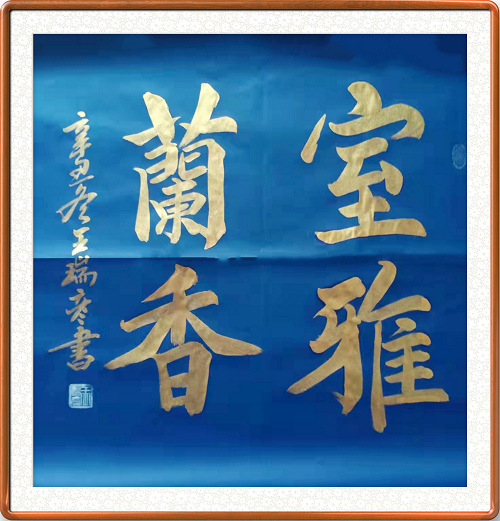 室雅
蘭香
辛丑冬王瑞彦書